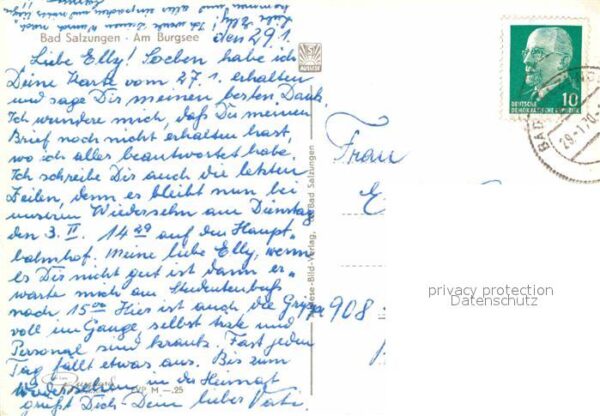 Bad Salzungen · Am Burgsee
den 29.1.
Liebe Elly! Soeben habe ich
Deine Karte vom 27.1. erhalten
und sage Dir meinen besten Dank.
Ich wundere mich, daß Du meinen
Brief noch nicht erhalten hast,
wo ich alles beantwortet habe.
Ich schreibe Dir auch die letzten
Zeilen, denn es bleibt nun bei
unserem Wiedersehn am Dienstag
den 3. II. 14 29 auf den Haupt-
bahnhof. Meine liebe Elly, wenn
es Dir nicht gut ist dann er-
warte mich am Studentenbuß
nach 15 00 Hier ist auch die Grippe
voll im Gange, selbst
Personal sind krank. Fast jeden
Tag fällt etwas aus. Bis zum
Wiedersehen in der Heimat
grüßt Dich Dein lieber Vati.
M —.25
Bild-Verlag, Bad Salzungen
DEUTSCHE
DEMOKRATISCHE REPUBLIK
10
BAD
29.-1.70
Frau
E
908
privacy protection
Datenschutz